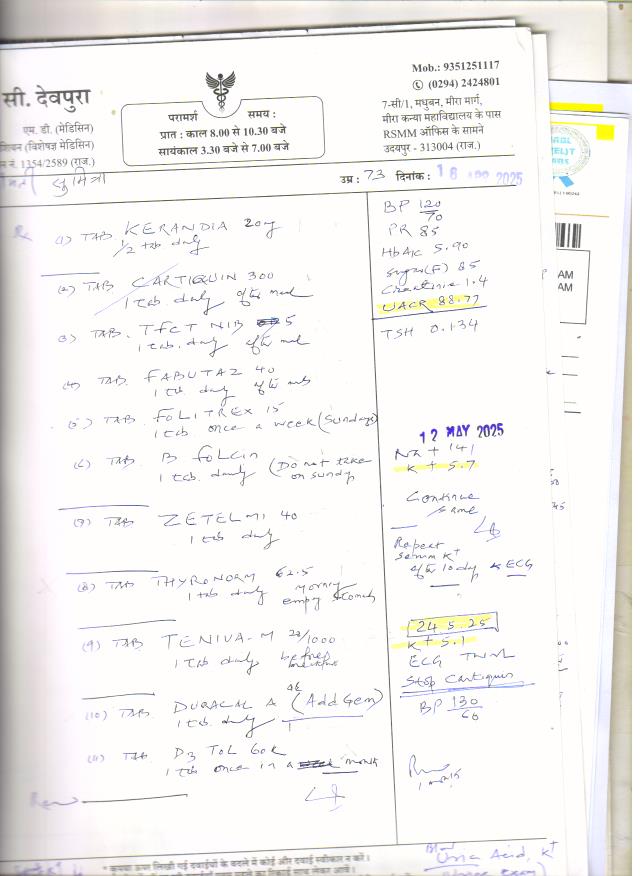 Mob.: 9351251117
(0294) 2424801
सी. देवपुरा
परामर्श समय :
प्रात : काल 8.00 से 10.30 बजे
सायंकाल 3.30 बजे से 7.00 बजे
एम. डी. (मेडिसिन)
(विशेषज्ञ मेडिसिन)
नं. 1354/2589 (राज.)
7-सी/1, मधुबन, मीरा मार्ग,
मीरा कन्या महाविद्यालय के पास
RSMM ऑफिस के सामने
उदयपुर - 313004 (राज.)
सुमित्रा
उम्र : 73 दिनांक : 16 2025
BP 120/70
PR 85
HbA1c 5.90
Sugar(F) 85
Creatinine 1.4
UACR 88.77
TSH 0.134
Rx
(1) TAB KERANDIA 20mg
1/2 tab daily
(2) TAB CARTIQUIN 300
1 tab. daily after meal
3) TAB. TFCT NIB 5
1 tab. daily after meal
(4) TAB. FABUTAZ 40
1 tab daily after meals
(5) TAB. FOLITREX 15
1 tab once a week (Sundays)
(6) TAB. B folcin
1 tab. daily (Do not take on sunday
(7) TAB ZETELMI 40
1 tab daily
(8) TAB THYRONORM 62.5
1 tab daily Morning empty stomach
(9) TAB TENIVA-M 20/1000
1 tab daily before breakfast
(10) TAB DURACAL A (Add Gem)
1 tab. daily
(11) TAB D3 TOL 60K
1 tab once in a month
12 MAY 2025
Na+ 141
K+ 5.7
Continue same
Repeat
serum K+
after 10 days & ECG
24 5.25
K+ 5.1
ECG
Stop Cartiquin
BP 130/60
1 month
* कृपया ऊपर लिखी गई दवाईयों के बदले में कोई और दवाई स्वीकार न करें।
Uric Acid, K+
AM
AM